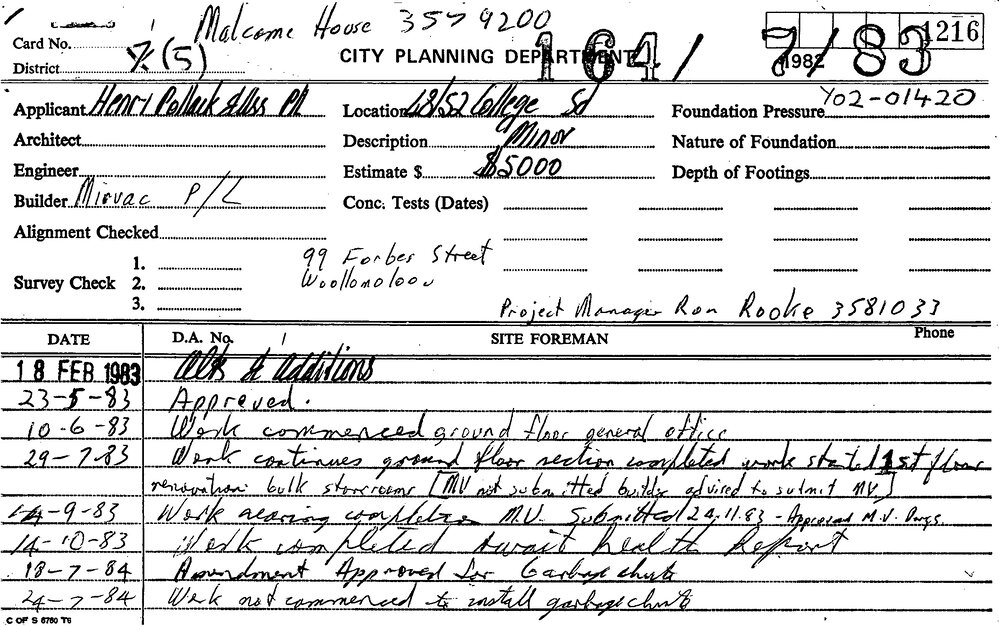 Malcome House 3579200
Card No.
1216
District 7/(5)
CITY PLANNING DEPARTMENT
164/7/83
1982
Applicant Henry Pollack & Ass P/L
Location 48/52 College Sd
Foundation Pressure Y02-01420
Architect
Description Minor
Nature of Foundation
Engineer
Estimate $ $5000
Depth of Footings
Builder Mirvac P/L
Conc. Tests (Dates)
Alignment Checked
99 Forbes Street
Woollomoloou
Survey Check
1.
2.
3.
Project Manager Ron Rooke 3581033
DATE D.A. No. SITE FOREMAN Phone
18 FEB 1983 Alts & additions
23-5-83 Approved.
10-6-83 Work commenced ground floor general office
29-7-83 Work continues ground floor section completed work started 1st floor
renovation bulk storerooms [MV not submitted builder advised to submit MV]
14-9-83 Work nearing completion M.V. Submitted 24.11.83 - Approved M.V. Dwgs.
14-10-83 Work completed await health Report
18-7-84 Amendment Approved for Garbage chute
24-7-84 Work not commenced to install garbage chute
C OF S 6760 T6